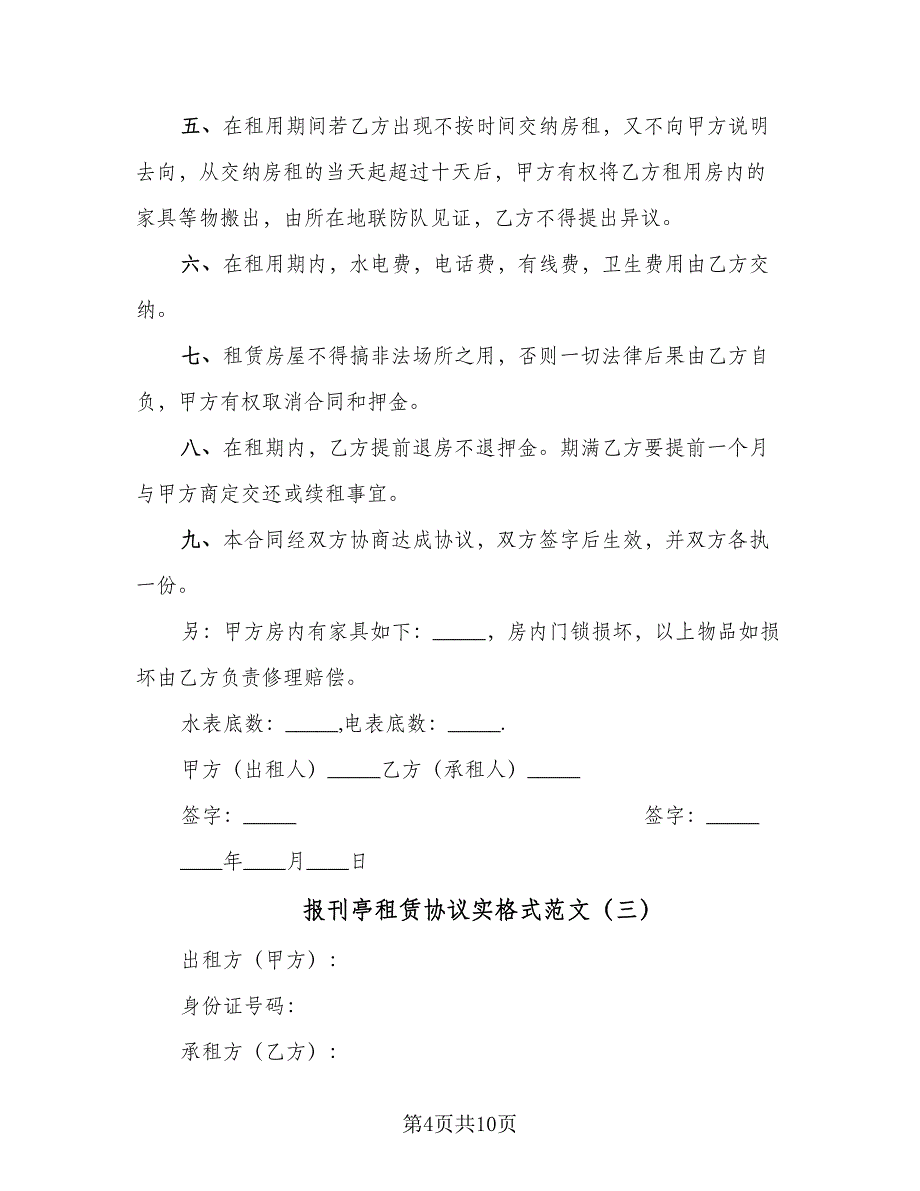 五、在租用期间若乙方出现不按时间交纳房租，又不向甲方说明
去向，从交纳房租的当天起超过十天后，甲方有权将乙方租用房内的
家具等物搬出，由所在地联防队见证，乙方不得提出异议。
六、在租用期内，水电费，电话费，有线费，卫生费用由乙方交
纳。
七、租赁房屋不得搞非法场所之用，否则一切法律后果由乙方自
负，甲方有权取消合同和押金。
八、在租期内，乙方提前退房不退押金。期满乙方要提前一个月
与甲方商定交还或续租事宜。
九、本合同经双方协商达成协议，双方签字后生效，并双方各执
一份。
另：甲方房内有家具如下：_____，房内门锁损坏，以上物品如损
坏由乙方负责修理赔偿。
水表底数：_____,电表底数：_____.
甲方（出租人）_____乙方（承租人）_____
签字：_____ 签字：_____
____年____月____日
报刊亭租赁协议实格式范文（三）
出租方（甲方）：
身份证号码：
承租方（乙方）：
第4页共10页